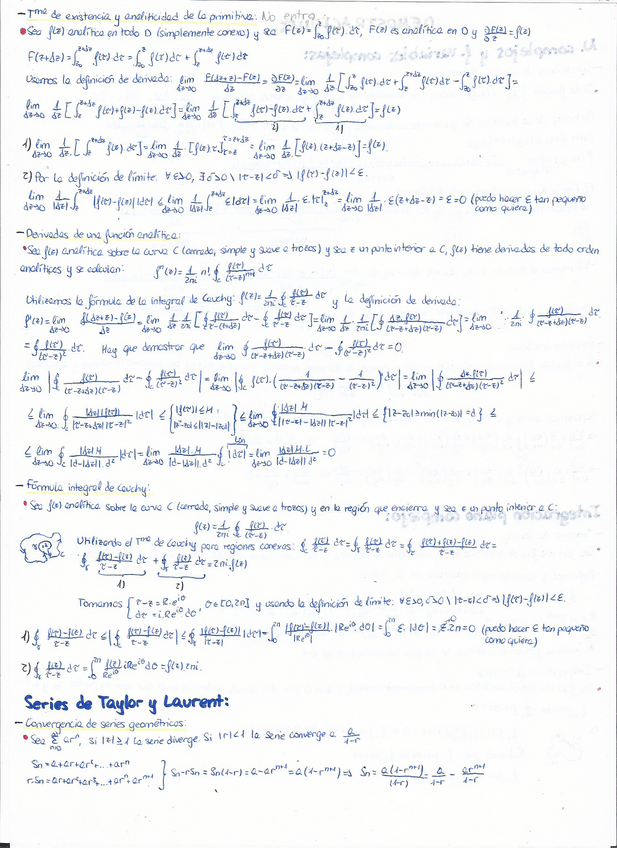 - Tma de existencia y analiticidad de la primitiva: No entra
• Sea f(z) analítica en todo D (simplemente conexo) y sea F(z)=∫_{z0}^{z} f(τ)·dτ, F(z) es analítica en D y ∂F(z)/∂z = f(z)
F(z+Δz)=∫_{z0}^{z+Δz} f(τ)·dτ = ∫_{z0}^{z} f(τ)dτ + ∫_{z}^{z+Δz} f(τ)dτ
Usamos la definición de derivada: lim_{Δz→0} F(Δz+z)-F(z)/Δz = ∂F(z)/∂z = lim_{Δz→0} 1/Δz [∫_{z0}^{z} f(τ)·dτ + ∫_{z}^{z+Δz} f(τ)dτ - ∫_{z0}^{z} f(τ)dτ] =
lim_{Δz→0} 1/Δz [∫_{z}^{z+Δz} f(τ)+f(z)-f(z)·dτ] = lim_{Δz→0} 1/Δz [∫_{z}^{z+Δz} f(τ)-f(z)·dτ + ∫_{z}^{z+Δz} f(z)·dτ] = f(z)
2) 1)
1) lim_{Δz→0} 1/Δz [∫_{z}^{z+Δz} f(z)·dτ] = lim_{Δz→0} 1/Δz · [f(z)·τ]_{τ=z}^{τ=z+Δz} = lim_{Δz→0} 1/Δz [f(z)·(z+Δz-z)] = f(z)
2) Por la definición de límite: ∀ε>0, ∃δ>0 \ |τ-z|<δ ⇒ |f(τ)-f(z)|<ε.
lim_{Δz→0} 1/|Δz| ∫_{z}^{z+Δz} |f(τ)-f(z)||dτ| ≤ lim_{Δz→0} 1/|Δz| ∫_{z}^{z+Δz} ε|dτ| = lim_{Δz→0} 1/|Δz| · ε·|τ|_{z}^{z+Δz} = lim_{Δz→0} 1/|Δz| · ε(z+Δz-z) = ε = 0 (puedo hacer ε tan pequeño
como quiera)
- Derivadas de una función analítica:
• Sea f(z) analítica sobre la curva C (cerrada, simple y suave a trozos) y sea z un punto interior a C, f(z) tiene derivadas de todo orden
analíticas y se calculan: f^n(z) = 1/2πi n! ∮_C f(τ)/(τ-z)^{n+1} dτ
Utilizamos la fórmula de la integral de Cauchy: f(z) = 1/2πi ∮_C f(τ)/τ-z dτ y la definición de derivada:
f'(z) = lim_{Δz→0} f(Δz+z)-f(z)/Δz = lim_{Δz→0} 1/Δz 1/2πi [∮_C f(τ)/τ-(z+Δz) dτ - ∮_C f(τ)/τ-z dτ] = lim_{Δz→0} 1/Δz · 1/2πi [∮_C Δz·f(τ)/(τ-z+Δz)(τ-z) dτ] = lim_{Δz→0} 1/2πi · ∮ f(τ)/(τ-z+Δz)(τ-z) dτ
= ∮_C f(τ)/(τ-z)² dτ. Hay que demostrar que lim_{Δz→0} ∮_C f(τ)/(τ-z+Δz)(τ-z) dτ - ∮_C f(τ)/(τ-z)² dτ = 0.
lim_{Δz→0} |∮_C f(τ)/(τ-z+Δz)(τ-z) dτ - ∮_C f(τ)/(τ-z)² dτ| = lim_{Δz→0} |∮_C f(τ)·(1/(τ-z+Δz)(τ-z) - 1/(τ-z)²) dτ| = lim_{Δz→0} |∮_C Δz·f(τ)/(τ-z+Δz)(τ-z)² dτ| ≤
≤ lim_{Δz→0} ∮_C |Δz||f(τ)|/|τ-z+Δz||τ-z|² |dτ| ≤ ≤ lim_{Δz→0} ∮_C |Δz|·M/||τ-z|-|Δz|||τ-z|² |dτ| ≤ {|z-z0| ≥ min(|z-z0|) = d} ≤
≤ lim_{Δz→0} ∮_C |Δz|·M/|d-|Δz||·d² |dτ| = lim_{Δz→0} |Δz|·M/|d-|Δz||·d² ∮_C |dτ| = lim_{Δz→0} |Δz|·M·L/|d-|Δz||·d² = 0
- Fórmula integral de Cauchy:
• Sea f(z) analítica sobre la curva C (cerrada, simple y suave a trozos) y en la región que encierra y sea z un punto interior a C:
f(z) = 1/2πi ∮_C f(τ)/τ-z · dτ
Utilizando el Tma de Cauchy para regiones conexas: ∮_C f(τ)/τ-z dτ = ∮_γ f(τ)/τ-z dτ = ∮_γ f(τ)+f(z)-f(z)/τ-z dτ =
∮_γ f(τ)-f(z)/τ-z dτ + ∮_γ f(z)/τ-z dτ = 2πi·f(z)
1) 2)
Tomamos {τ-z = R·e^{iθ}, dτ = i·Re^{iθ}dθ, θ∈[0,2π] y usando la definición de límite: ∀ε>0, δ>0 \ |τ-z|<δ ⇒ |f(τ)-f(z)|<ε.
1) ∮_γ f(τ)-f(z)/τ-z dτ ≤ |∮_γ f(τ)-f(z)/τ-z dτ| ≤ ∮_γ |f(τ)-f(z)|/|τ-z| |dτ| = ∫_0^{2π} |f(τ)-f(z)|/|Re^{iθ}| · |Re^{iθ} dθ| = ∫_0^{2π} ε·|dθ| = ε·2π = 0 (puedo hacer ε tan pequeño
como quiera)
2) ∮_γ f(z)/τ-z dτ = ∫_0^{2π} f(z)/Re^{iθ} iRe^{iθ}dθ = f(z)·2πi.
Series de Taylor y Laurent:
- Convergencia de series geométricas:
• Sea Σ_{n=0}^{∞} ar^n, si |r|≥1 la serie diverge. Si |r|<1 la serie converge a a/1-r
Sn = a+ar+ar²+...+ar^n
r·Sn = ar+ar²+...+ar^n+ar^{n+1}
} Sn-rSn = Sn(1-r) = a-ar^{n+1} = a(1-r^{n+1}) ⇒ Sn = a(1-r^{n+1})/(1-r) = a/1-r - ar^{n+1}/1-r